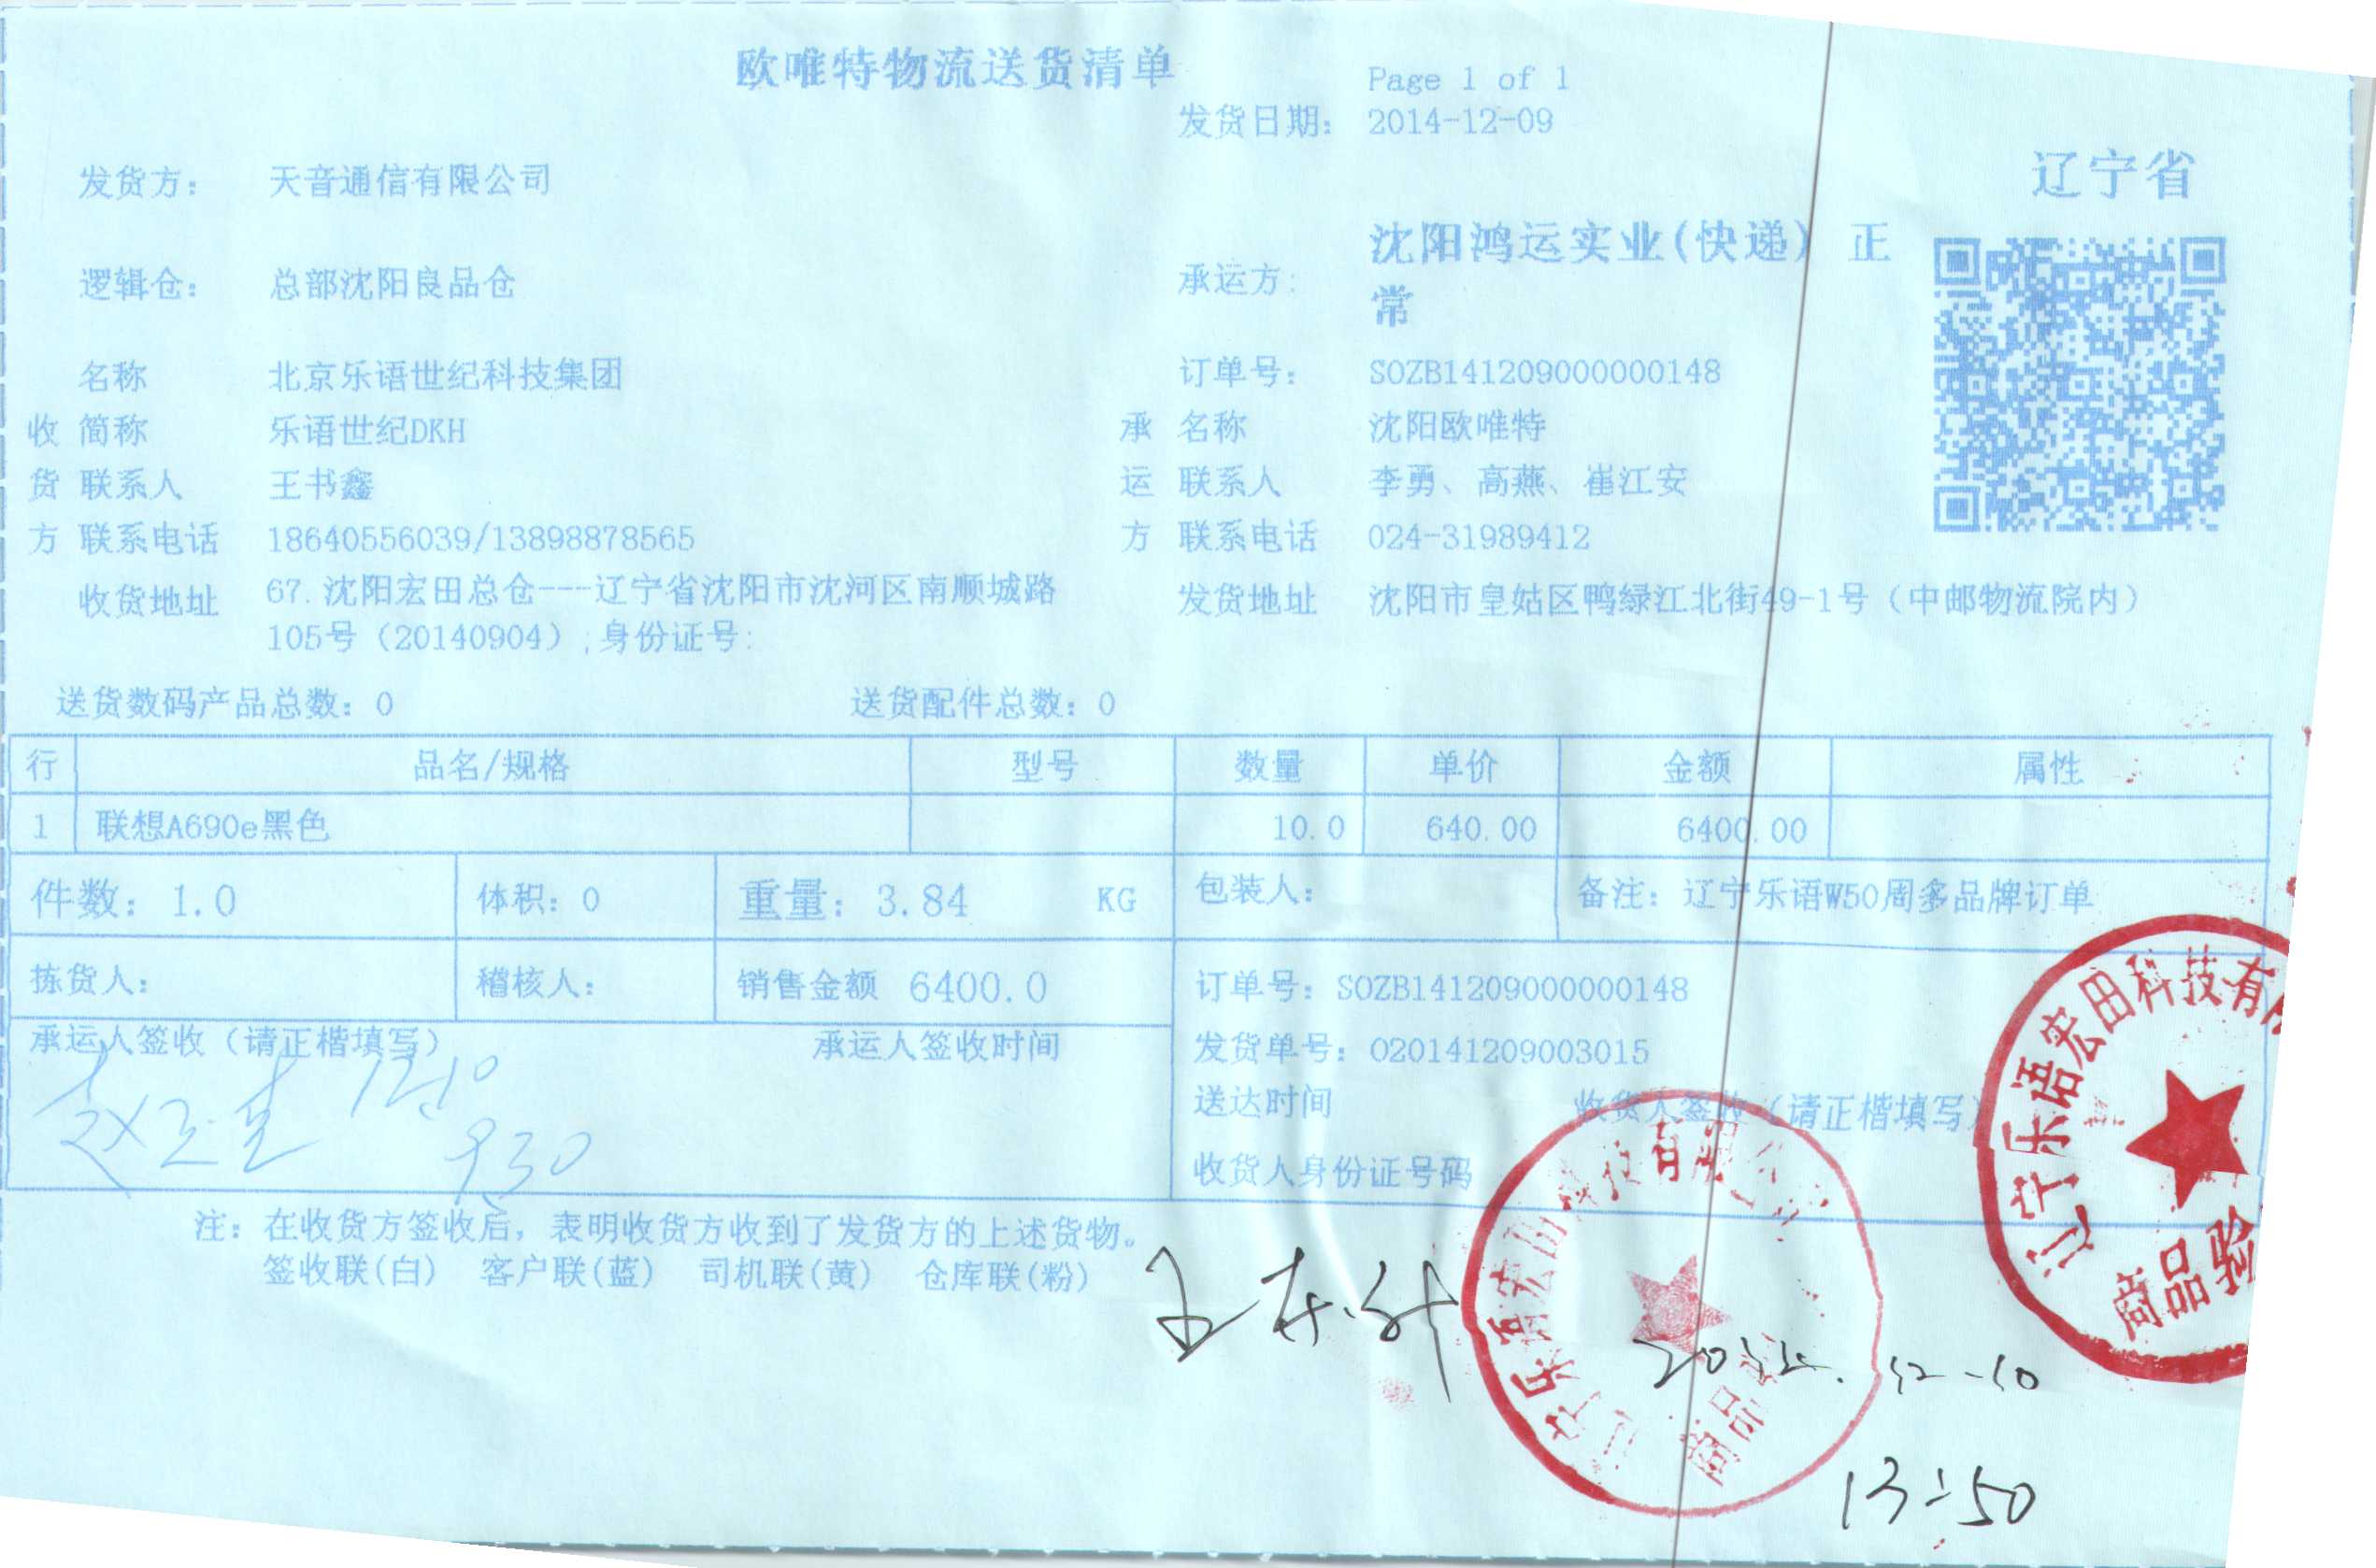 欧唯特物流送货清单
Page 1 of 1
发货日期: 2014-12-09
辽宁省
发货方: 天音通信有限公司
逻辑仓: 总部沈阳良品仓
承运方: 沈阳鸿运实业(快递) 正常
名称 北京乐语世纪科技集团
订单号: SOZB141209000000148
收 简称 乐语世纪DKH
承 名称 沈阳欧唯特
货 联系人 王书鑫
运 联系人 李勇、高燕、崔江安
方 联系电话 18640556039/13898878565
方 联系电话 024-31989412
收货地址 67.沈阳宏田总仓---辽宁省沈阳市沈河区南顺城路
105号（20140904）;身份证号:
发货地址 沈阳市皇姑区鸭绿江北街49-1号（中邮物流院内）
送货数码产品总数: 0 送货配件总数: 0
行 品名/规格 型号 数量 单价 金额 属性
1 联想A690e黑色 10.0 640.00 6400.00
件数: 1.0 体积: 0 重量: 3.84 KG 包装人: 备注: 辽宁乐语W50周多品牌订单
拣货人: 稽核人: 销售金额 6400.0
订单号: SOZB141209000000148
承运人签收（请正楷填写） 承运人签收时间
发货单号: O20141209003015
送达时间 收货人签收（请正楷填写）
收货人身份证号码
12.10
930
注: 在收货方签收后, 表明收货方收到了发货方的上述货物。
签收联(白) 客户联(蓝) 司机联(黄) 仓库联(粉)
辽宁乐语宏田科技有限
商品验
辽宁乐语宏田科技有限公司
商品
12-10
13:50